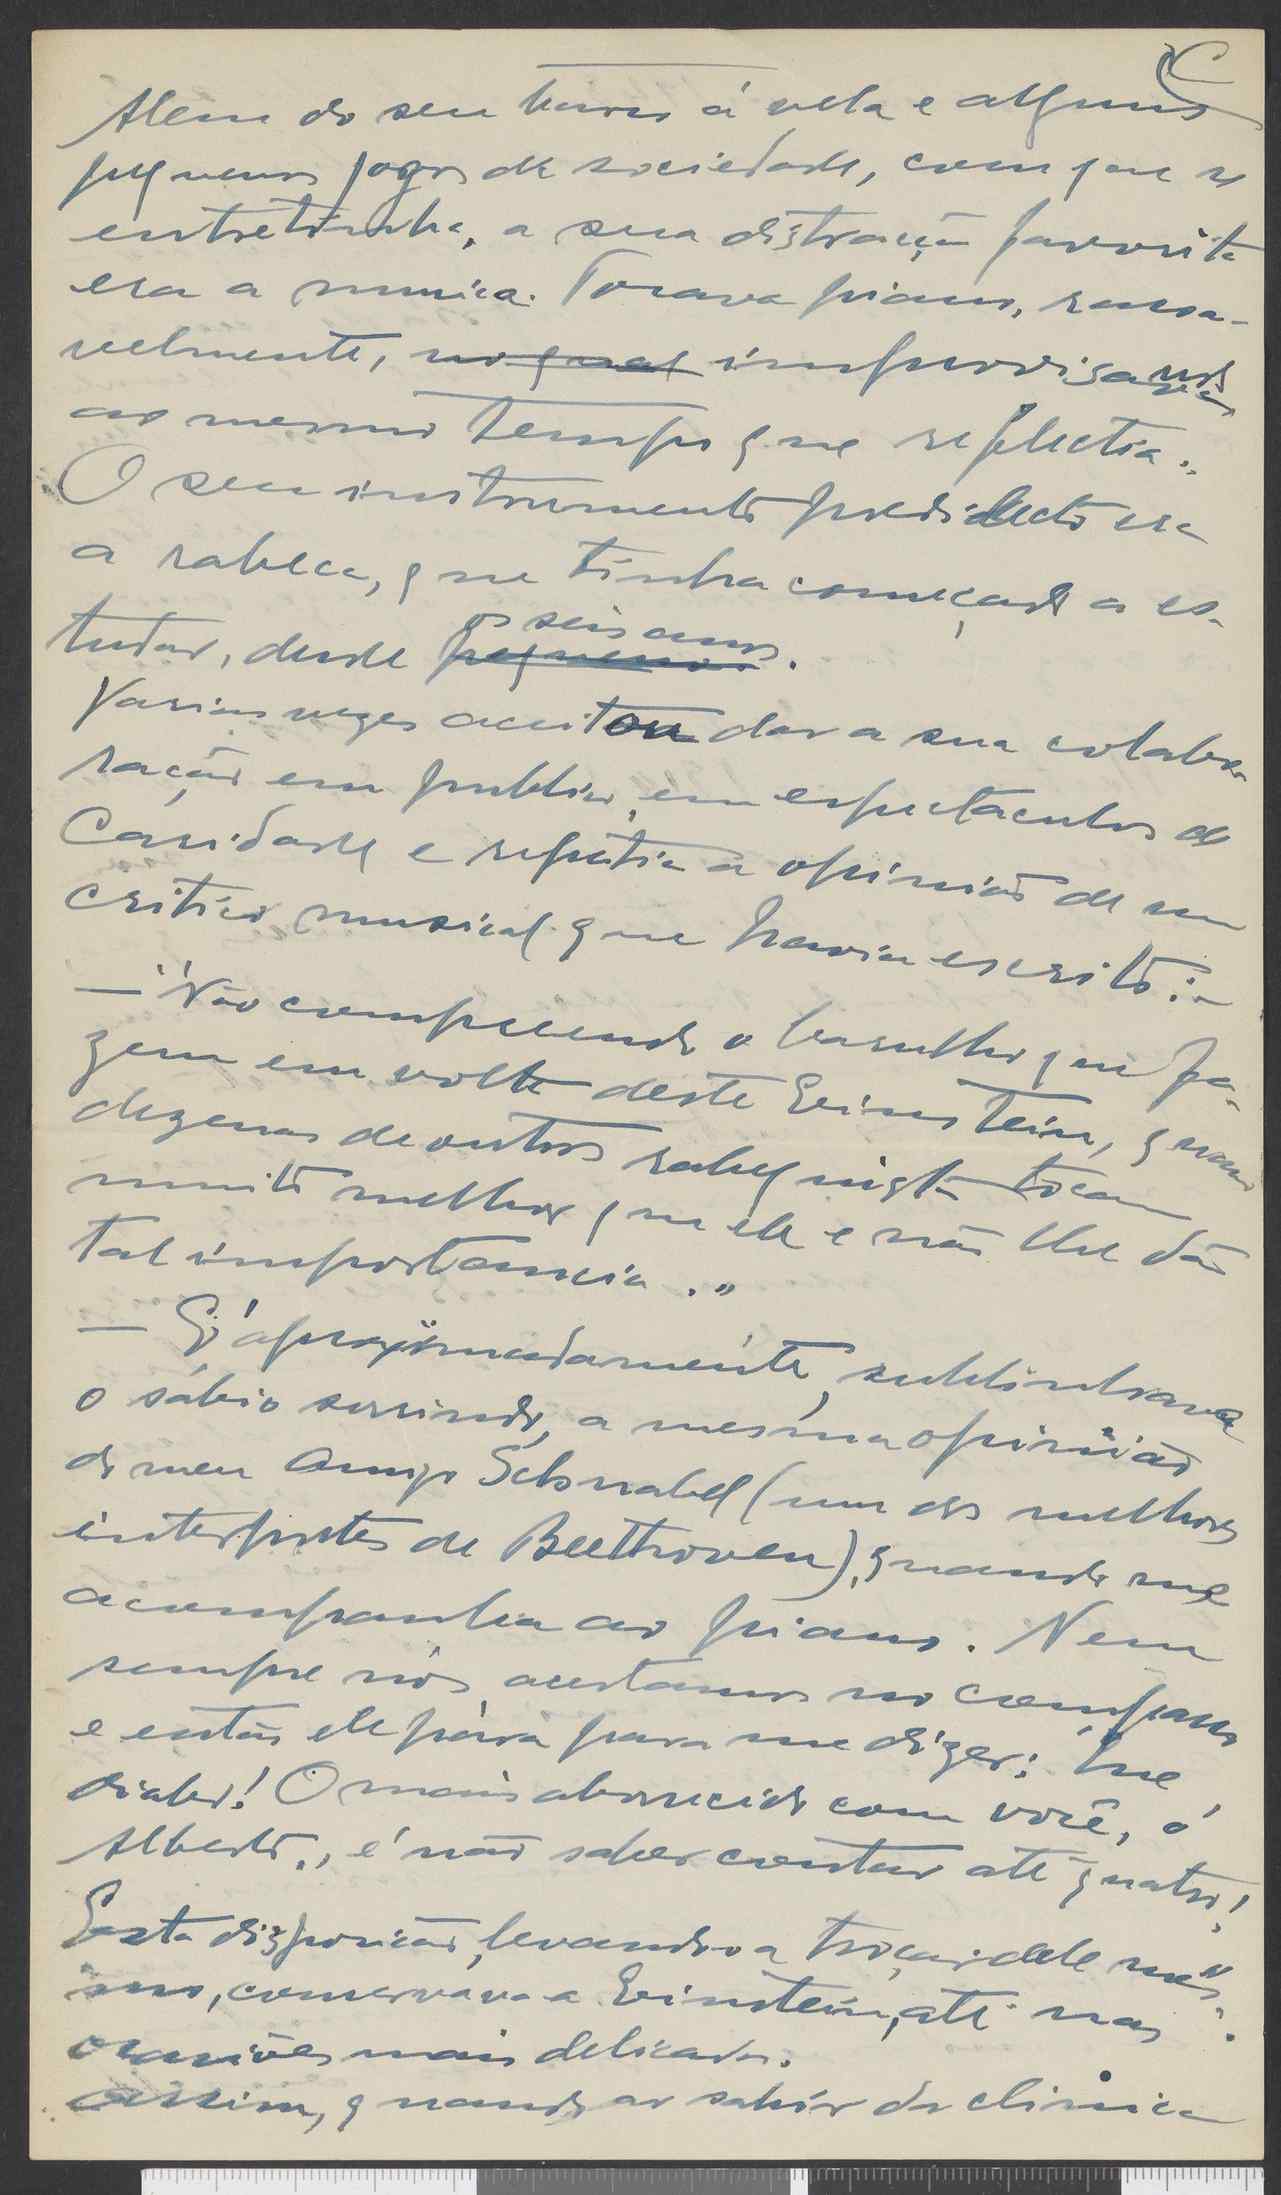 Alem do seu barco á vela e alguns
pequenos jogos de sociedade, com que se
entretinha, a sua distração favorita
era a musica. Tocava piano, rasoa-
velmente, no qual improvisando
ao mesmo tempo que reflectia.
O seu instrumento predilecto era
a rabeca, que tinha começado a es-
tudar, desde os seis anos.
pequeno
Varias vezes aceitou dar a sua colabo-
ração em publico, em espectaculos de
Caridade e repetia a opinião de um
critico musical que havia escrito:
— "Não compreendo o barulho que fa-
zem em volta deste Einstein, quando
dezenas de outros rabequistas tocam
muito melhor que ele e não lhe dão
tal importancia."
— É aproximadamente, sublinhava
o sábio sorrindo, a mesma opinião
do meu amigo Schnabel (um dos melhores
interpretes de Beethoven), quando me
acompanha ao piano. Nem
sempre nós acertamos no compasso
e então ele pára para me dizer: Que
diabo! O mais aborrecido com você, ó
Alberto, é não saber contar até quatro!
Esta disposição, levando-o a troçar dele mes-
mo, conservava-a Einstein, até nas
ocasiões mais delicadas.
Assim, quando ao sahir da clinica